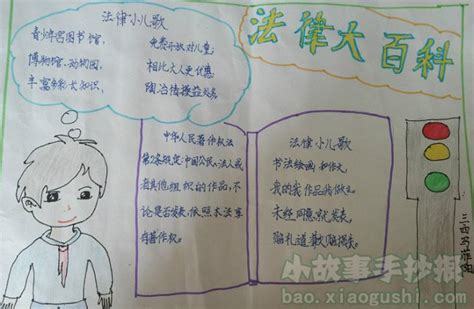 法律大百科
法律小儿歌
青少年宫图书馆,
博物馆、动物园,
丰富多彩长知识,
免费开放对儿童;
相比大人更优惠,
陶冶情操益处多
中华人民著作权法
第2条规定:中国公民、法人或
者其他组织的作品,不
论是否发表,依照本法享
有著作权。
法律小儿歌
书法绘画和作文,
我的我作品我做主。
未经同意就发表,
赔礼道歉
小故事手抄报
bao.xiaogushi.com